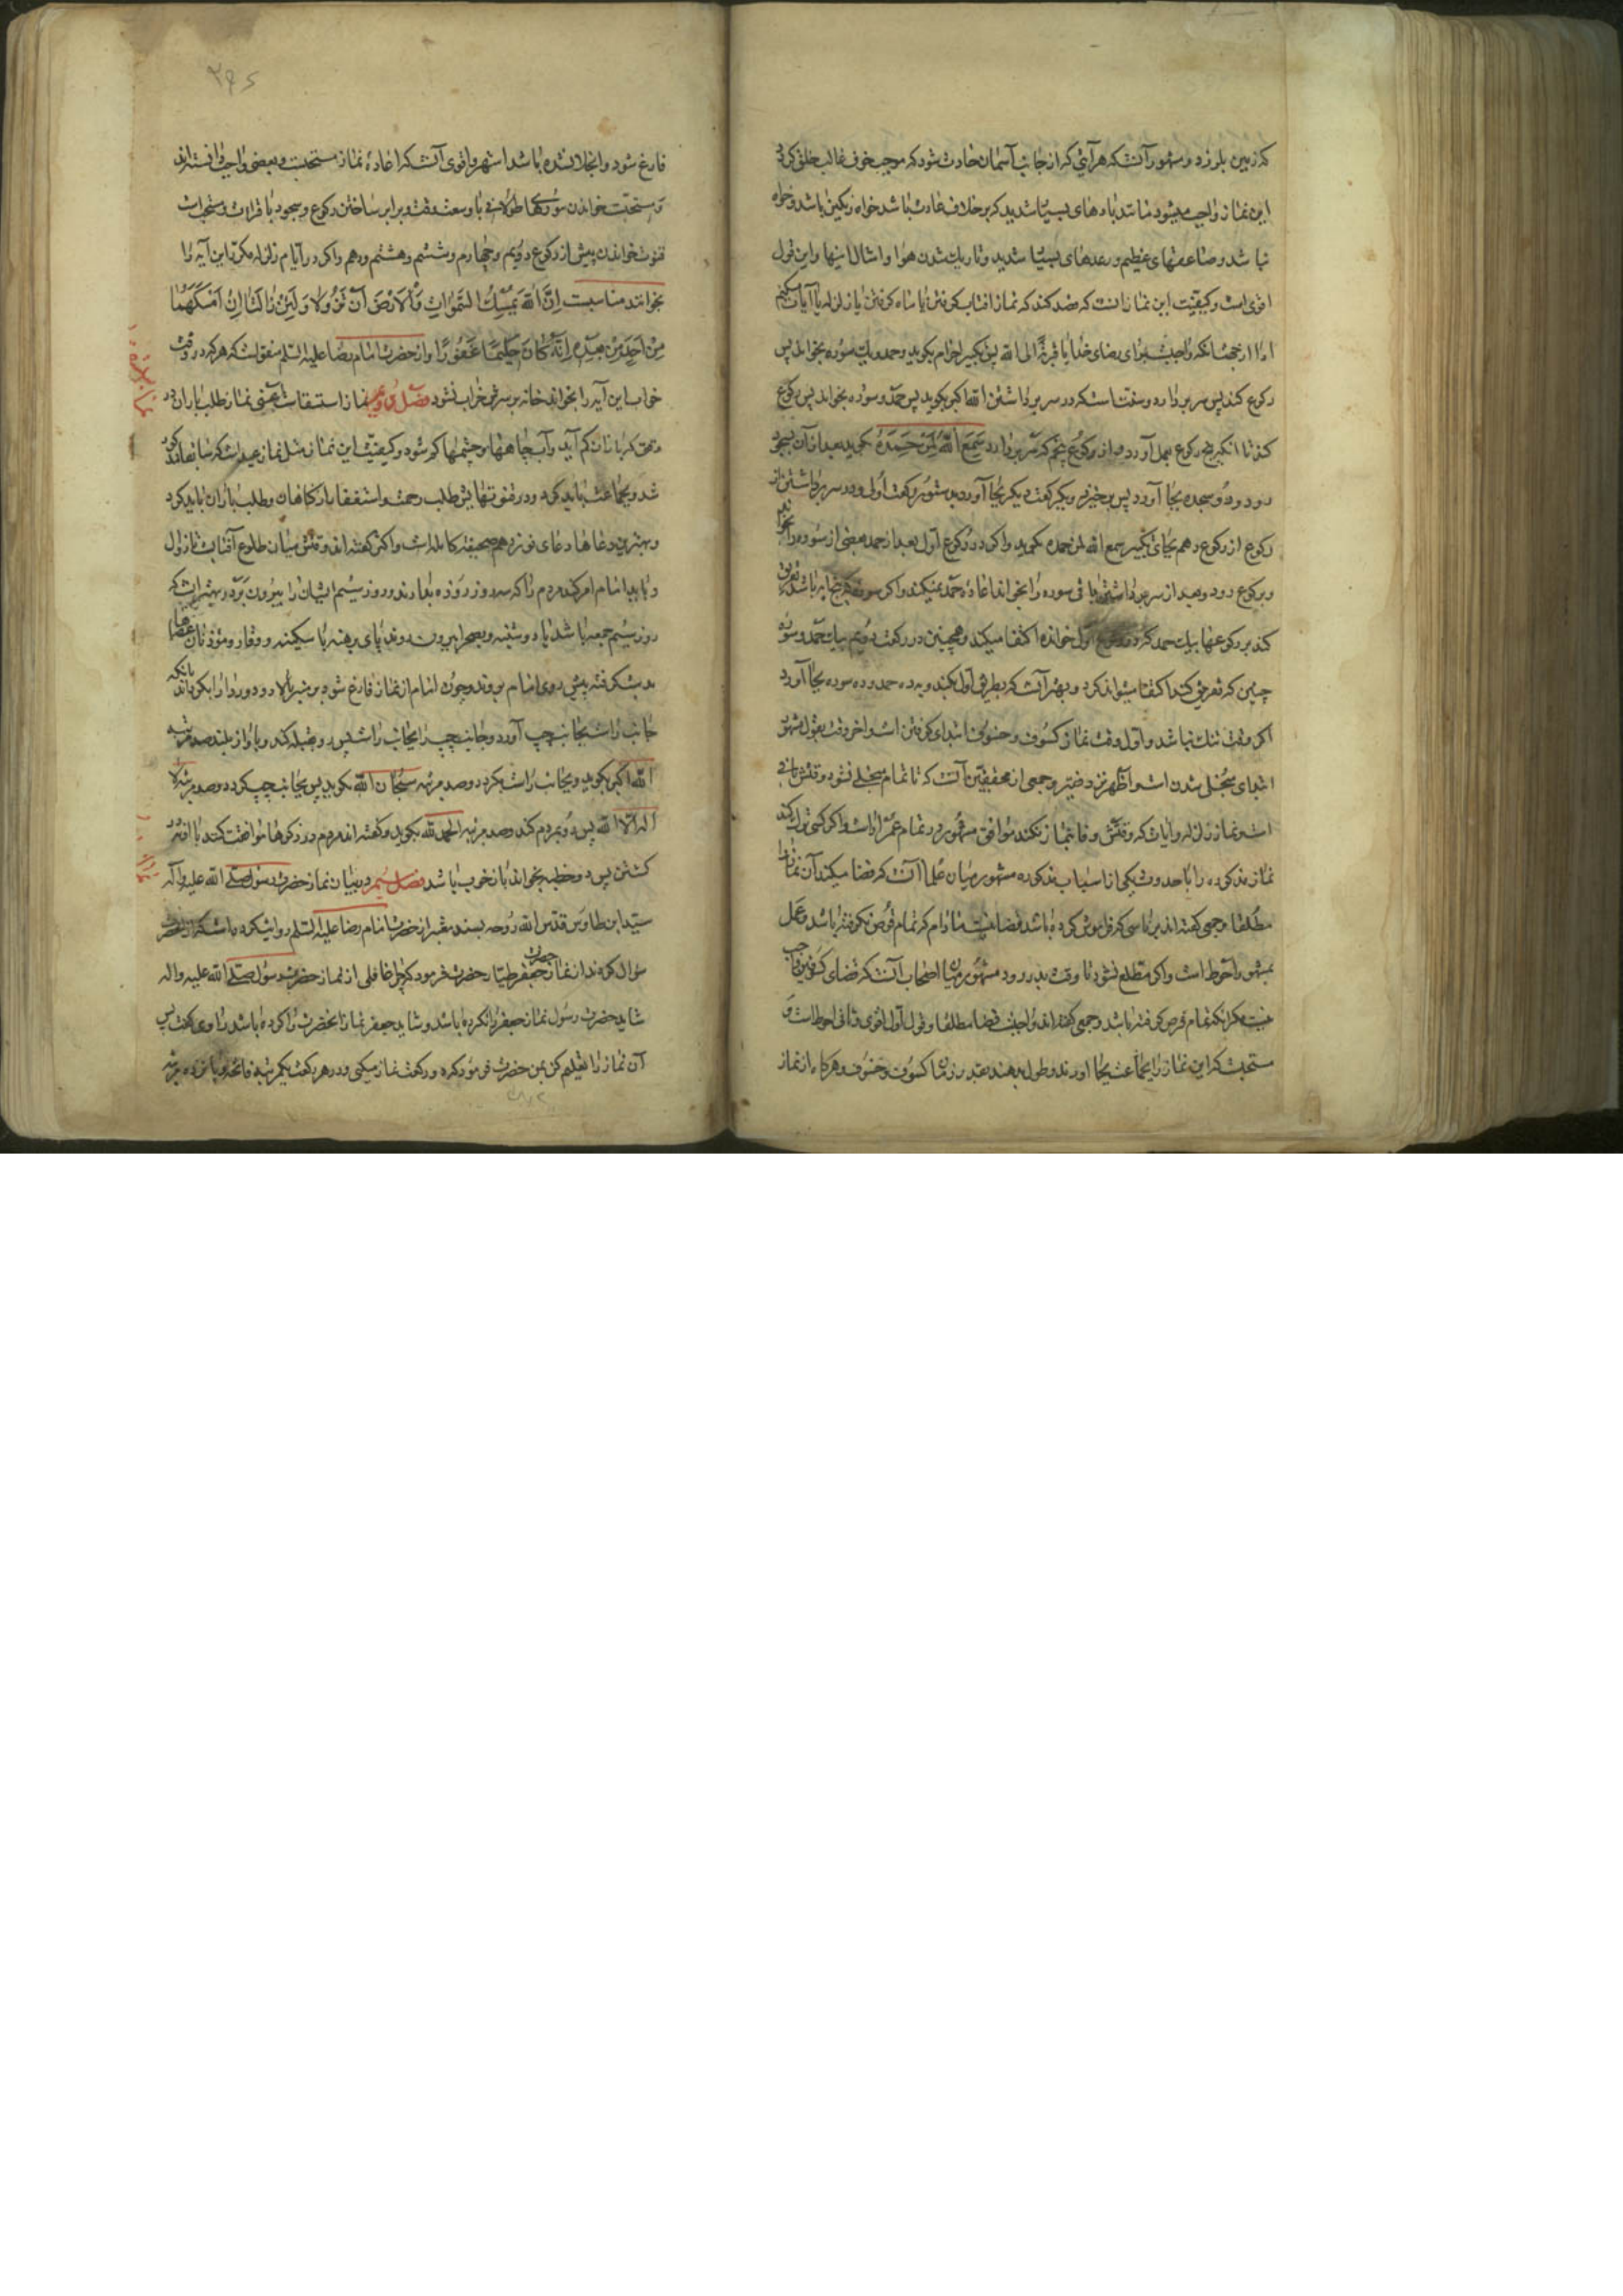 که زمین بلرزد و مشهور آنست که هر آیتی که از جانب آسمان حادث شود که موجب خوف غالب خلق گردد
این نماز واجب میشود مانند بادهای بسیار شدید که بر خلاف عادت باشد خواه رنگین باشد و خواه
نباشد و صاعقهای عظیم و رعدهای بسیار شدید و تاریک شدن هوا و امثال اینها و این قول
اقوی است و کیفیت این نماز آنست که قصد کند که نماز آفتاب گرفتن یا ماه گرفتن یا زلزله یا آیات میکنم
ادا از جهة آنکه واجبست برای رضای خدا یا قربةً الی الله پس تکبیر احرام بگوید و حمد و یک سوره بخواند پس
رکوع کند پس سر بردارد و سنت است که در سر برداشتن الله اکبر بگوید پس حمد و سوره بخواند پس رکوع
کند تا آنکه پنج رکوع بعمل آورد و از رکوع پنجم که سر بردارد سَمِعَ اللهُ لِمَنْ حَمِدَهُ بگوید بعد از آن بسجود
رود و دو سجده بجا آورد پس برخیزد و یک رکعت دیگر بجا آورد بدستور رکعت اول و در سر برداشتن از
رکوع از رکوع دهم بجای تکبیر سمع الله لمن حمده بگوید و اگر در رکوع اول بعد از حمد بعضی از سوره را بخواند
و برکوع رود و بعد از سر برداشتن باقی سوره را بخواند اعادهٔ حمد نمیکند و اگر سوره
کند بر رکوعها بیک حمد که در رکوع اول خوانده اکتفا میکند و همچنین در رکعت دویم بیک حمد و سوره
چنین که تفریق کند اکتفا میتواند کرد و بهتر آنست که بطریق اول بکند و به ده حمد و ده سوره بجا آورد
اگر وقت تنگ نباشد و اول وقت نماز کسوف و خسوف ابتدای گرفتن است و آخر وقت بقول مشهور
ابتدای منجلی شدن است و اظهر نزد فقیر و جمعی از محققین آنست که تا تمام منجلی نشود وقتش باقی
است و نماز زلزله و آیات که وقتش وفا بنماز نکند موافق مشهور در تمام عمر اداست و اگر کسی ترک کند
نماز مذکوره را با حدوث یکی از اسباب مذکوره مشهور میان علما آنست که قضا میکند آن نماز را
مطلقا و جمعی گفته اند بر ناسی که فراموش کرده باشد قضا نیست مادام که تمام قرص نگرفته باشد و عمل
بمشهور احوط است و اگر مطلع نشود تا وقت بدر رود مشهور میان اصحاب آنست که قضای کسوفین واجب
نیست مگر آنکه تمام قرص گرفته باشد و جمعی گفته اند واجبست قضا مطلقا و قول اول اقوی و ثانی احوط است و
مستحبست که این نماز را بجماعت بجا آورند و طول بدهند بقدر زمان کسوف و خسوف و هرگاه از نماز
۲۶۵
فارغ شود و انجلا نشده باشد اشهر و اقوی آنست که اعادهٔ نماز مستحبست و بعضی واجب دانسته اند
و مستحبست خواندن سورهای طولانی با وسعت وقت و برابر ساختن رکوع و سجود با قرائت و سنت است
قنوت خواندن پیش از رکوع دویم و چهارم و ششم و هشتم و دهم و اگر در ایام زلزله مکرر این آیه را
بخوانند مناسبست اِنَّ اللهَ یُمْسِکُ السَّمٰوَاتِ وَالْاَرْضَ اَنْ تَزُولَا وَلَئِنْ زَالَتَا اِنْ اَمْسَکَهُمَا
مِنْ اَحَدٍ مِنْ بَعْدِهِ اِنَّهُ کَانَ حَلِیمًا غَفُورًا و از حضرت امام رضا علیه السلم منقولست که هر که در وقت
خواب این آیه را بخواند خانه بر سرش خراب نشود فصل دویم نماز استسقاست یعنی نماز طلب باران در
وقتی که باران کم آید و آب چاهها و چشمها کم شود و کیفیت این نماز مثل نماز عید است که سابقا مذکور
شد و بجماعت باید کرد و در قنوتهایش طلب رحمت و استغفار بر گناهان و طلب باران باید کرد
و بهترین دعاها دعای نوزدهم صحیفهٔ کامله است و اکثر گفته اند وقتش میان طلوع آفتاب تا زوال
و باید امام امر کند مردم را که سه روز روزه بدارند و روز سیم ایشان را بیرون برد و بهتر آنست که
روز سیم جمعه باشد یا دوشنبه و بصحرا بیرون روند پای برهنه با سکینه و وقار و مؤذنان عصاها
بدست گرفته پیش روی امام بروند و چون امام از نماز فارغ شود بر منبر بالا رود و ردا را بگرداند بآنکه
جانب راست بجانب چپ آورد و جانب چپ را بجانب راست پس رو بقبله کند و بآواز بلند صد مرتبه
الله اکبر بگوید و بجانب راست بگردد و صد مرتبه سبحان الله بگوید پس بجانب چپ گردد و صد مرتبه لا
اله الا الله پس رو بمردم کند و صد مرتبه الحمد لله بگوید و گفته اند مردم در ذکرها موافقت کنند با او نه در
گشتن پس دو خطبه بخواند باز خوب باشد فصل سیم در بیان نماز حضرت رسول صلی الله علیه و آله
سید ابن طاوس قدس الله روحه بسند معتبر از حضرت امام رضا علیه السلم روایت کرده است که از آنحضرت
سؤال کردند از نماز حضرت جعفر طیار حضرت فرمود که چرا غافلی از نماز حضرت رسول صلی الله علیه و اله
شاید حضرت رسول نماز جعفر را نکرده باشد و شاید جعفر نماز آنحضرت را نکرده باشد راوی گفت پس
آن نماز را تعلیم کن بمن حضرت فرمود که دو رکعت نماز میکنی و در هر رکعت یک مرتبه فاتحه و پانزده مرتبه